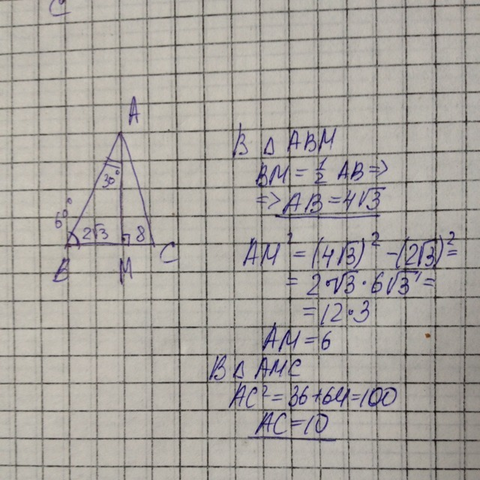 C
A
30°
60°
2√3
8
B
M
C
В △ ABM
BM = ½ AB =>
=> AB = 4√3
AM² = (4√3)² - (2√3)² =
= 2·√3 · 6√3 =
= 12·3
AM = 6
В △ AMC
AC² = 36 + 64 = 100
AC = 10